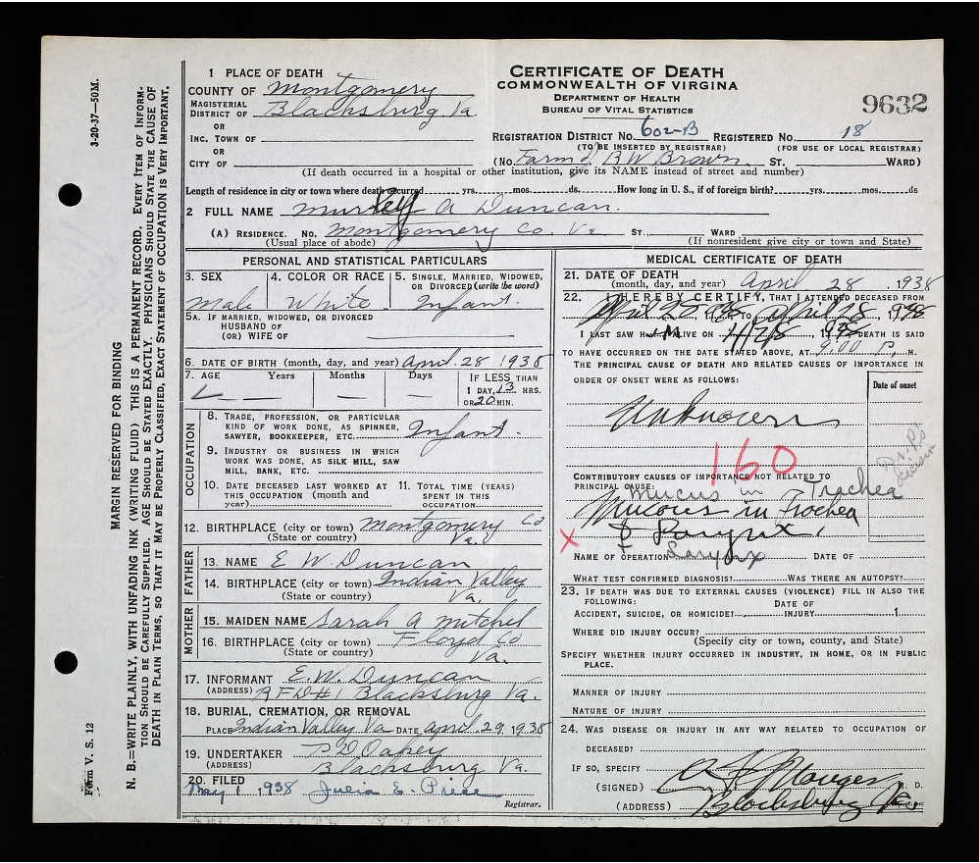 CERTIFICATE OF DEATH
COMMONWEALTH OF VIRGINA
DEPARTMENT OF HEALTH
BUREAU OF VITAL STATISTICS
9632
1 PLACE OF DEATH
COUNTY OF Montgomery
MAGISTERIAL DISTRICT OF Blacksburg Va.
OR
INC. TOWN OF
OR
CITY OF
REGISTRATION DISTRICT NO. 602-B REGISTERED NO. 18
(TO BE INSERTED BY REGISTRAR) (FOR USE OF LOCAL REGISTRAR)
(No. Farm of B.W. Brown ST. WARD)
(If death occurred in a hospital or other institution, give its NAME instead of street and number)
Length of residence in city or town where death occurred yrs. mos. ds. How long in U. S., if of foreign birth? yrs. mos. ds
2 FULL NAME A Duncan.
(A) RESIDENCE. No. Montgomery Co. Va ST. WARD
(Usual place of abode) (If nonresident give city or town and State)
PERSONAL AND STATISTICAL PARTICULARS
3. SEX Male
4. COLOR OR RACE White
5. SINGLE, MARRIED, WIDOWED, OR DIVORCED (write the word) Infant.
5A. IF MARRIED, WIDOWED, OR DIVORCED
HUSBAND OF
(OR) WIFE OF
6. DATE OF BIRTH (month, day, and year) April. 28 1938
7. AGE Years Months Days IF LESS THAN
1 DAY, 13 HRS.
OR 20 MIN.
OCCUPATION
8. TRADE, PROFESSION, OR PARTICULAR
KIND OF WORK DONE, AS SPINNER,
SAWYER, BOOKKEEPER, ETC. Infant.
9. INDUSTRY OR BUSINESS IN WHICH
WORK WAS DONE, AS SILK MILL, SAW
MILL, BANK, ETC.
10. DATE DECEASED LAST WORKED AT
THIS OCCUPATION (month and
year)
11. TOTAL TIME (YEARS)
SPENT IN THIS
OCCUPATION
12. BIRTHPLACE (city or town) Montgomery Co
(State or country) Va.
FATHER
13. NAME E W Duncan
14. BIRTHPLACE (city or town) Indian Valley
(State or country) Va.
MOTHER
15. MAIDEN NAME Sarah A Mitchel
16. BIRTHPLACE (city or town) Floyd Co
(State or country) Va.
17. INFORMANT E. W. Duncan
(ADDRESS) RFD #1 Blacksburg Va.
18. BURIAL, CREMATION, OR REMOVAL
PLACE Indian Valley Va DATE April 29, 1938
19. UNDERTAKER Oakey
Blacksburg Va.
20. FILED May 1 1938 Julia E. Price
Registrar.
MEDICAL CERTIFICATE OF DEATH
21. DATE OF DEATH
(month, day, and year) April 28, 1938
22. I HEREBY CERTIFY, THAT I ATTENDED DECEASED FROM
April 28 1938, TO April 28, 1938
I LAST SAW H im ALIVE ON 4/28 1938 DEATH IS SAID
TO HAVE OCCURRED ON THE DATE STATED ABOVE, AT 9:00 P. M.
THE PRINCIPAL CAUSE OF DEATH AND RELATED CAUSES OF IMPORTANCE IN
ORDER OF ONSET WERE AS FOLLOWS:
Date of onset
Unknown
160
CONTRIBUTORY CAUSES OF IMPORTANCE NOT RELATED TO
PRINCIPAL CAUSE:
Mucus in Trachea
Mucous in Trochea
& Larynx
Larynx
NAME OF OPERATION DATE OF
WHAT TEST CONFIRMED DIAGNOSIS? WAS THERE AN AUTOPSY?
23. IF DEATH WAS DUE TO EXTERNAL CAUSES (VIOLENCE) FILL IN ALSO THE
FOLLOWING:
ACCIDENT, SUICIDE, OR HOMICIDE? DATE OF INJURY 1
WHERE DID INJURY OCCUR?
(Specify city or town, county, and State)
SPECIFY WHETHER INJURY OCCURRED IN INDUSTRY, IN HOME, OR IN PUBLIC
PLACE.
MANNER OF INJURY
NATURE OF INJURY
24. WAS DISEASE OR INJURY IN ANY WAY RELATED TO OCCUPATION OF
DECEASED?
IF SO, SPECIFY
(SIGNED) M. D.
(ADDRESS) Blacksburg Va
3-20-37—50M.
MARGIN RESERVED FOR BINDING
N. B.=WRITE PLAINLY, WITH UNFADING INK (WRITING FLUID) THIS IS A PERMANENT RECORD. EVERY ITEM OF INFORM-
TION SHOULD BE CAREFULLY SUPPLIED. AGE SHOULD BE STATED EXACTLY. PHYSICIANS SHOULD STATE THE CAUSE OF
DEATH IN PLAIN TERMS, SO THAT IT MAY BE PROPERLY CLASSIFIED. EXACT STATEMENT OF OCCUPATION IS VERY IMPORTANT.
Form V. S. 12